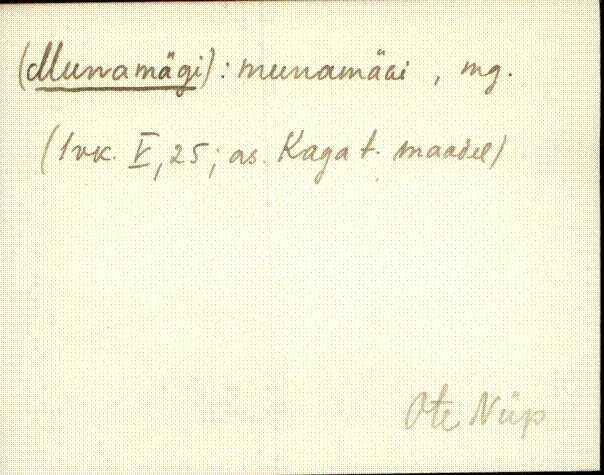 (Munamägi): munamäGi , mg.
(1vk. V, 25; as. Kaga t. maadel)
Ote Nüp